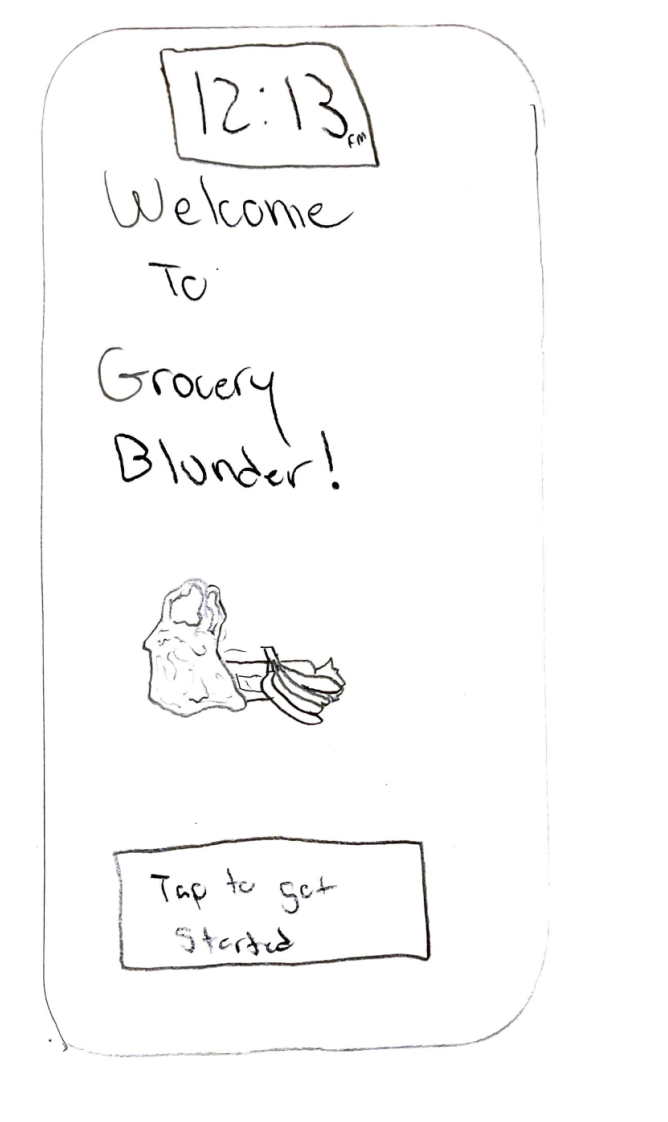 12:13 PM
Welcome
To
Grocery
Blunder!
Tap to get
Started